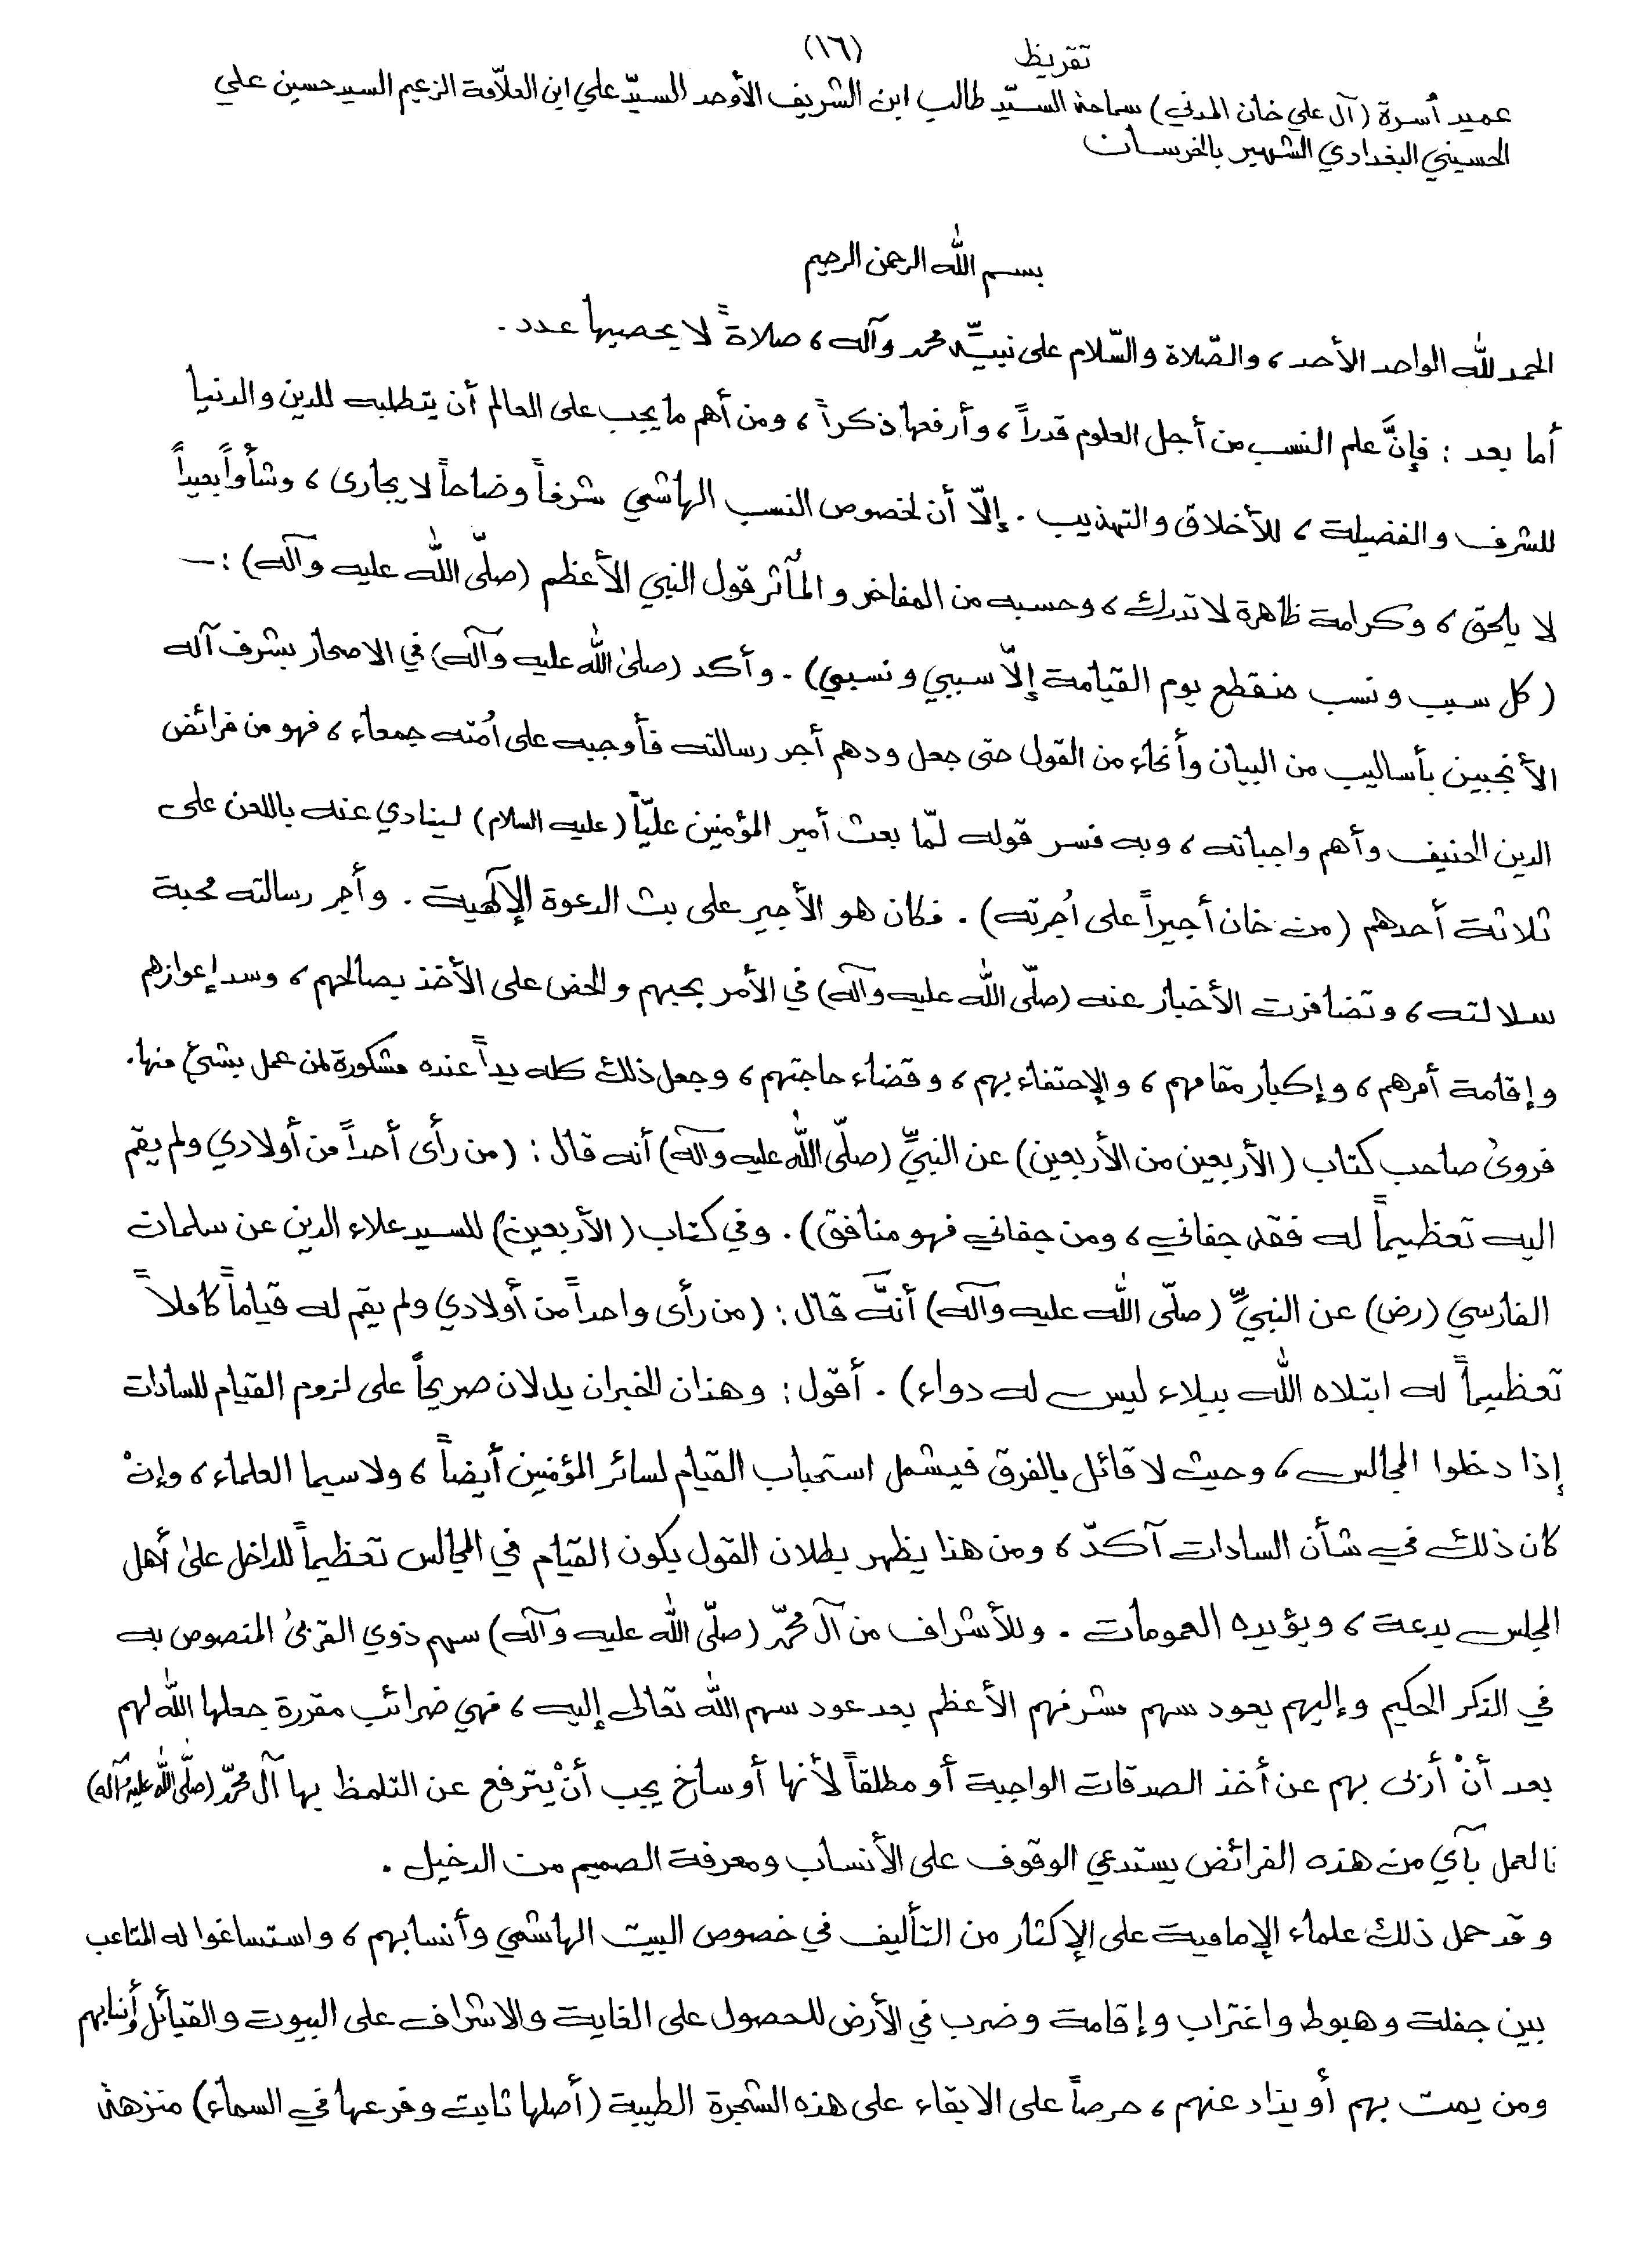 (١٦)
تقريظ
عميد أسرة (آل علي خان المدني) سماحة السيّد طالب ابن الشريف الأوحد السيّد علي ابن العلاّمة الزعيم السيد حسين علي
الحسيني البغدادي الشهير بالخرسان
بسم الله الرحمن الرحيم
الحمد لله الواحد الأحد، والصّلاة والسّلام على نبيّه محمد وآله، صلاةً لا يحصيها عدد.
أما بعد : فإنَّ علم النسب من أجل العلوم قدراً، وأرفعها ذكراً، ومن أهم ما يجب على العالم أن يتطلبه للدين والدنيا
للشرف والفضيلة، للأخلاق والتهذيب. إلاّ أن لخصوص النسب الهاشمي شرفاً وضاحاً لا يجارى، وشأواً بعيداً
لا يلحق، وكرامة ظاهرة لا تدرك، وحسبه من المفاخر والمآثر قول النبي الأعظم (صلّى الله عليه وآله) :ـ
(كل سبب ونسب منقطع يوم القيامة إلاّ سببي ونسبي). وأكد (صلى الله عليه وآله) في الاصحار بشرف آله
الأنجبين بأساليب من البيان وأنحاء من القول حتى جعل ودهم أجر رسالته فأوجبه على اُمته جمعاء، فهو من فرائض
الدين الحنيف وأهم واجباته، وبه فسر قوله لمّا بعث أمير المؤمنين عليّاً (عليه السلام) لينادي عنه باللعن على
ثلاثة أحدهم (من خان أجيراً على اُجرته). فكان هو الأجير على بث الدعوة الإلهية. وأجر رسالته محبة
سلالته، وتضافرت الأخبار عنه (صلّى الله عليه وآله) في الأمر بحبهم والحض على الأخذ بصالحهم، وسد إعوازهم
وإقامة أمرهم، وإكبار مقامهم، والإحتفاء بهم، وقضاء حاجتهم، وجعل ذلك كله يداً عنده مشكورة لمن عمل بشيء منها.
فروى صاحب كتاب (الأربعين من الأربعين) عن النبيِّ (صلّى الله عليه وآله) أنه قال: (من رأى أحداً من أولادي ولم يقم
اليه تعظيماً له فقد جفاني، ومن جفاني فهو منافق). وفي كتاب (الأربعين) للسيد علاء الدين عن سلمان
الفارسي (رض) عن النبيِّ (صلّى الله عليه وآله) أنَّه قال: (من رأى واحداً من أولادي ولم يقم له قياماً كاملاً
تعظيماً له ابتلاه الله ببلاء ليس له دواء). أقول: وهذان الخبران يدلان صريحاً على لزوم القيام للسادات
إذا دخلوا المجالس، وحيث لا قائل بالفرق فيشمل استحباب القيام لسائر المؤمنين أيضاً، ولاسيما العلماء، وإنْ
كان ذلك في شأن السادات آكدّ، ومن هذا يظهر بطلان القول بكون القيام في المجالس تعظيماً للداخل على أهل
المجلس بدعة، ويؤيده العمومات. وللأشراف من آل محمّد (صلّى الله عليه وآله) سهم ذوي القربى المنصوص به
في الذكر الحكيم وإليهم يعود سهم مشرفهم الأعظم بعد عود سهم الله تعالى إليه، فهي ضرائب مقررة جعلها الله لهم
بعد أنْ أربى بهم عن أخذ الصدقات الواجبة أو مطلقاً لأنها أوساخ يجب أنْ يترفع عن التلمظ بها آل محمّد (صلّى الله عليه وآله)
فالعمل بآي من هذه الفرائض يستدعي الوقوف على الأنساب ومعرفة الصميم من الدخيل.
وقد حمل ذلك علماء الإمامية على الإكثار من التأليف في خصوص البيت الهاشمي وأنسابهم، واستساغوا له المتاعب
بين جفلة وهبوط واغتراب وإقامة وضرب في الأرض للحصول على الغاية والاشراف على البيوت والقبائل وأنسابهم
ومن يمت بهم أو يذاد عنهم، حرصاً على الابقاء على هذه الشجرة الطيبة (أصلها ثابت وفرعها في السماء) منزهة